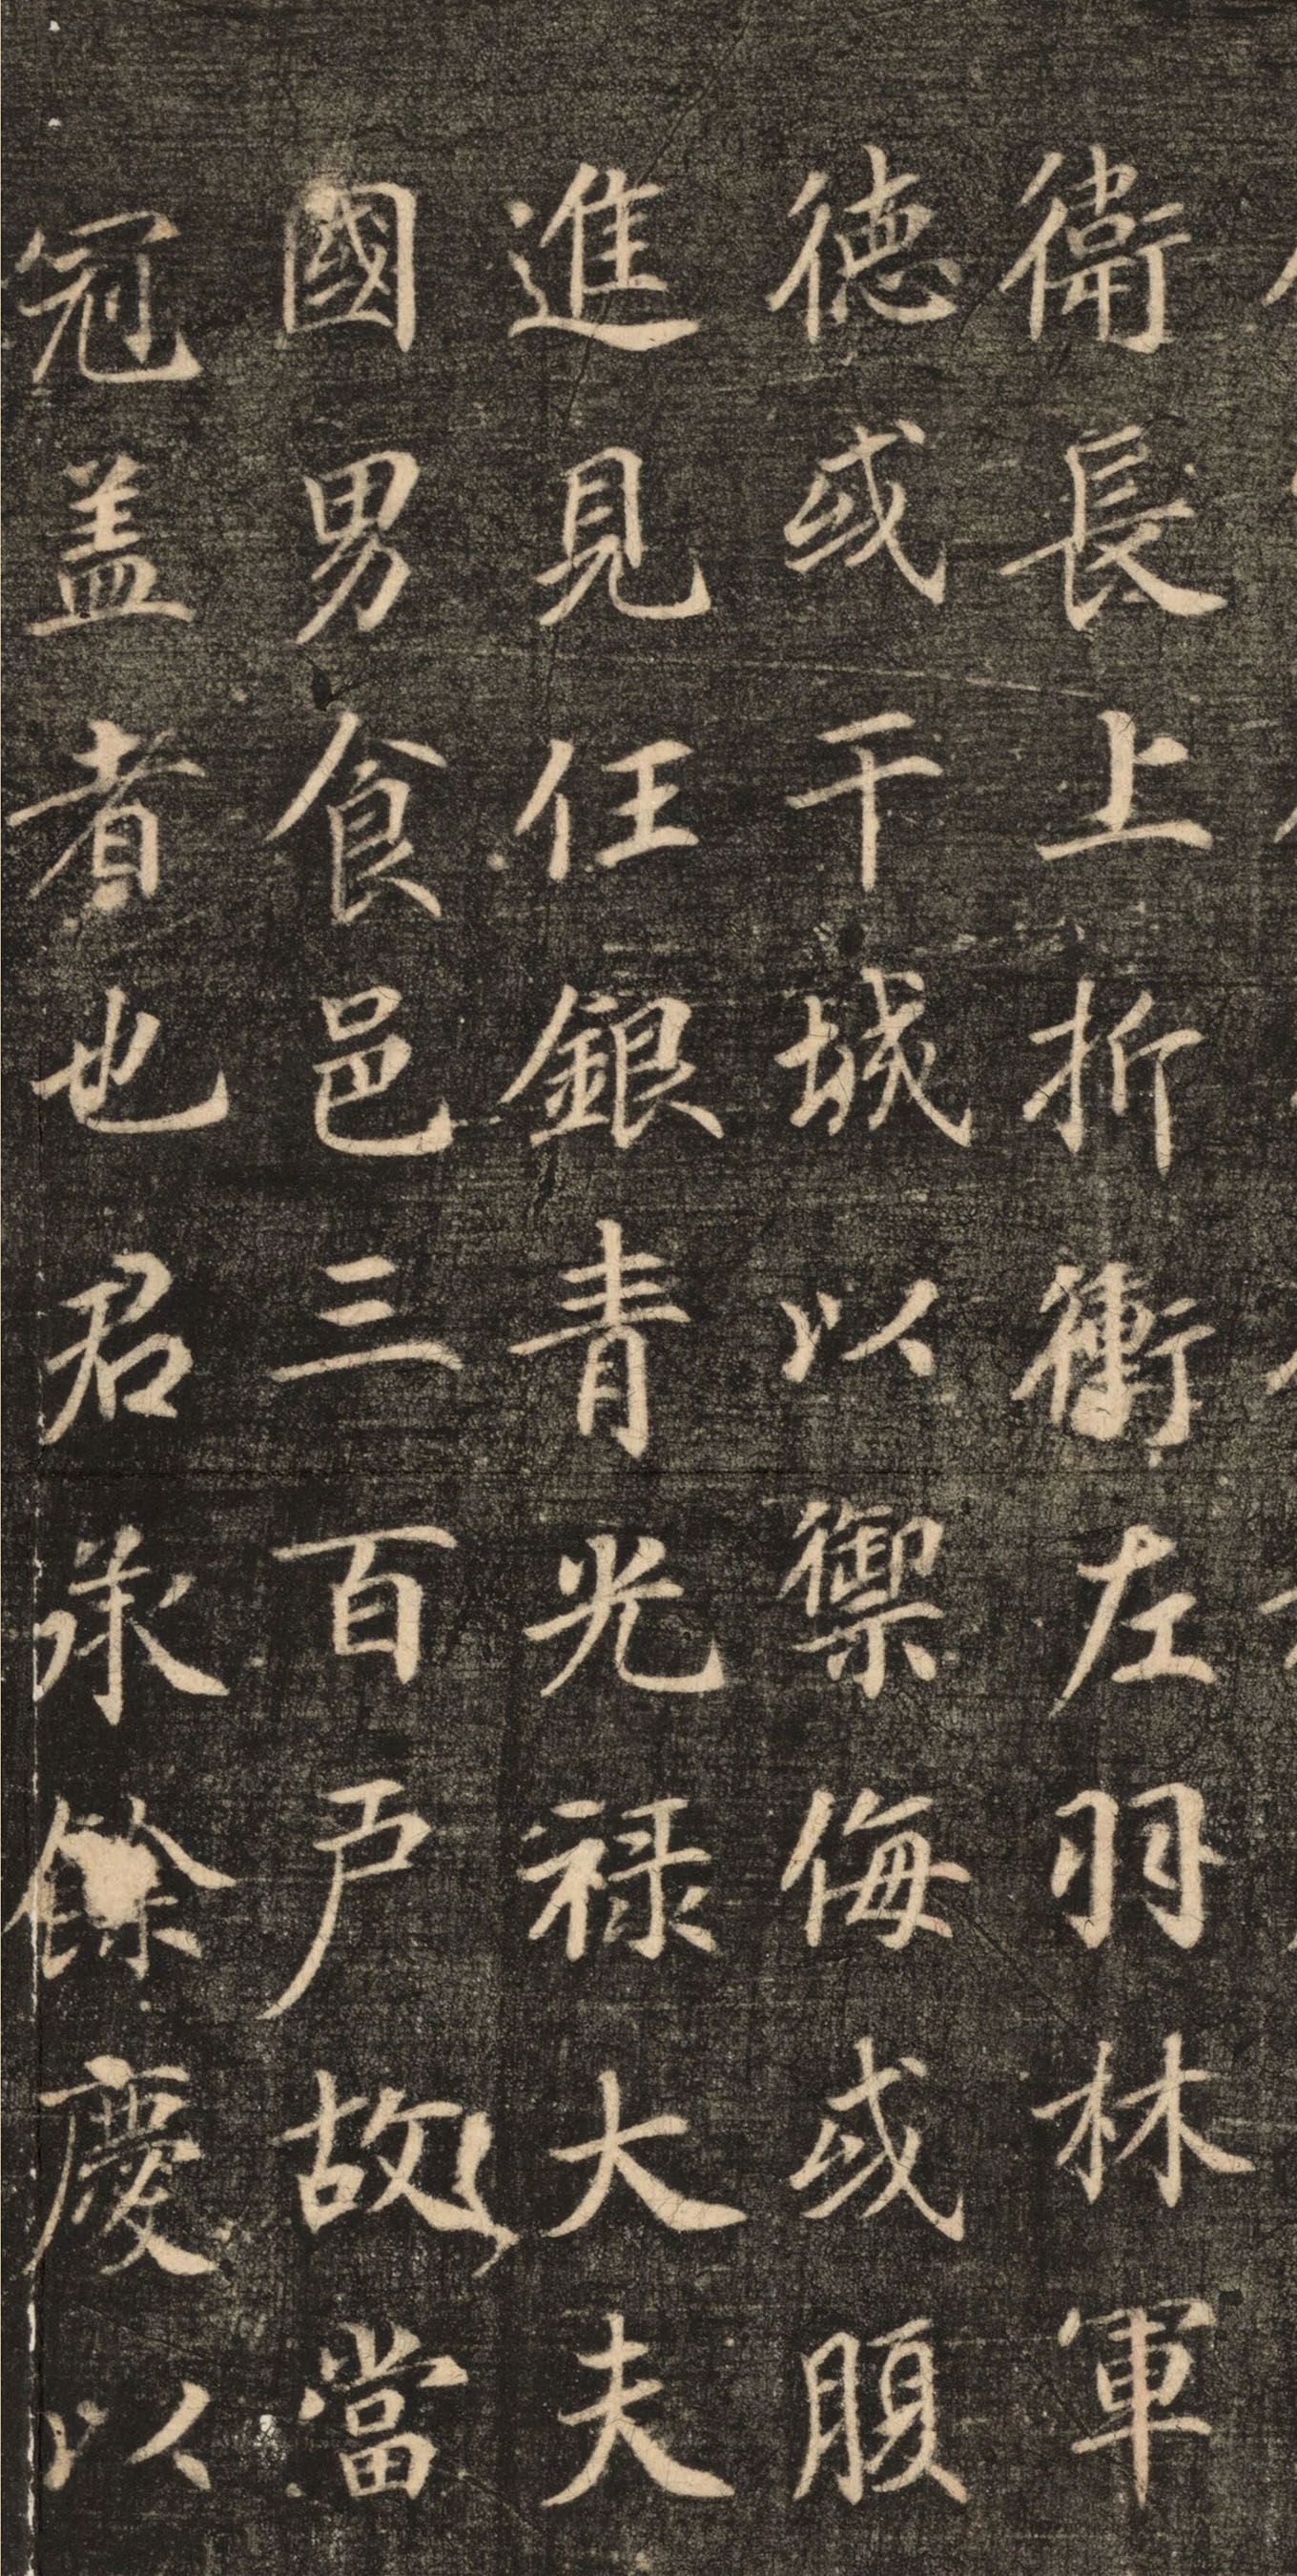 衛長上折衝左羽林軍
德或干城以禦侮或腹
進見任銀青光禄大夫
國男食邑三百戸故當
冠盖者也君承餘慶以